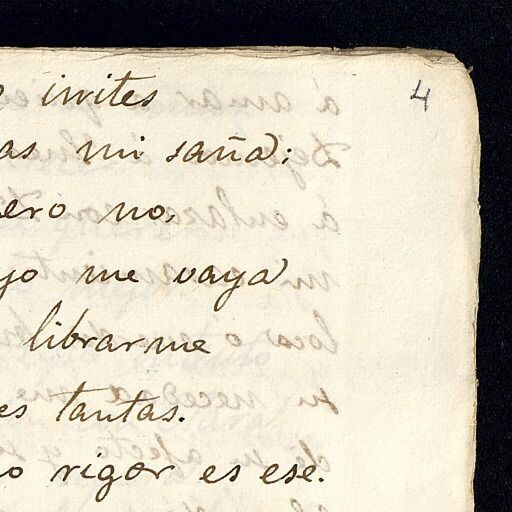 4
invites
as mi saña;
ero no,
yo me vaya
librarme
es tantas.
o rigor es ese.